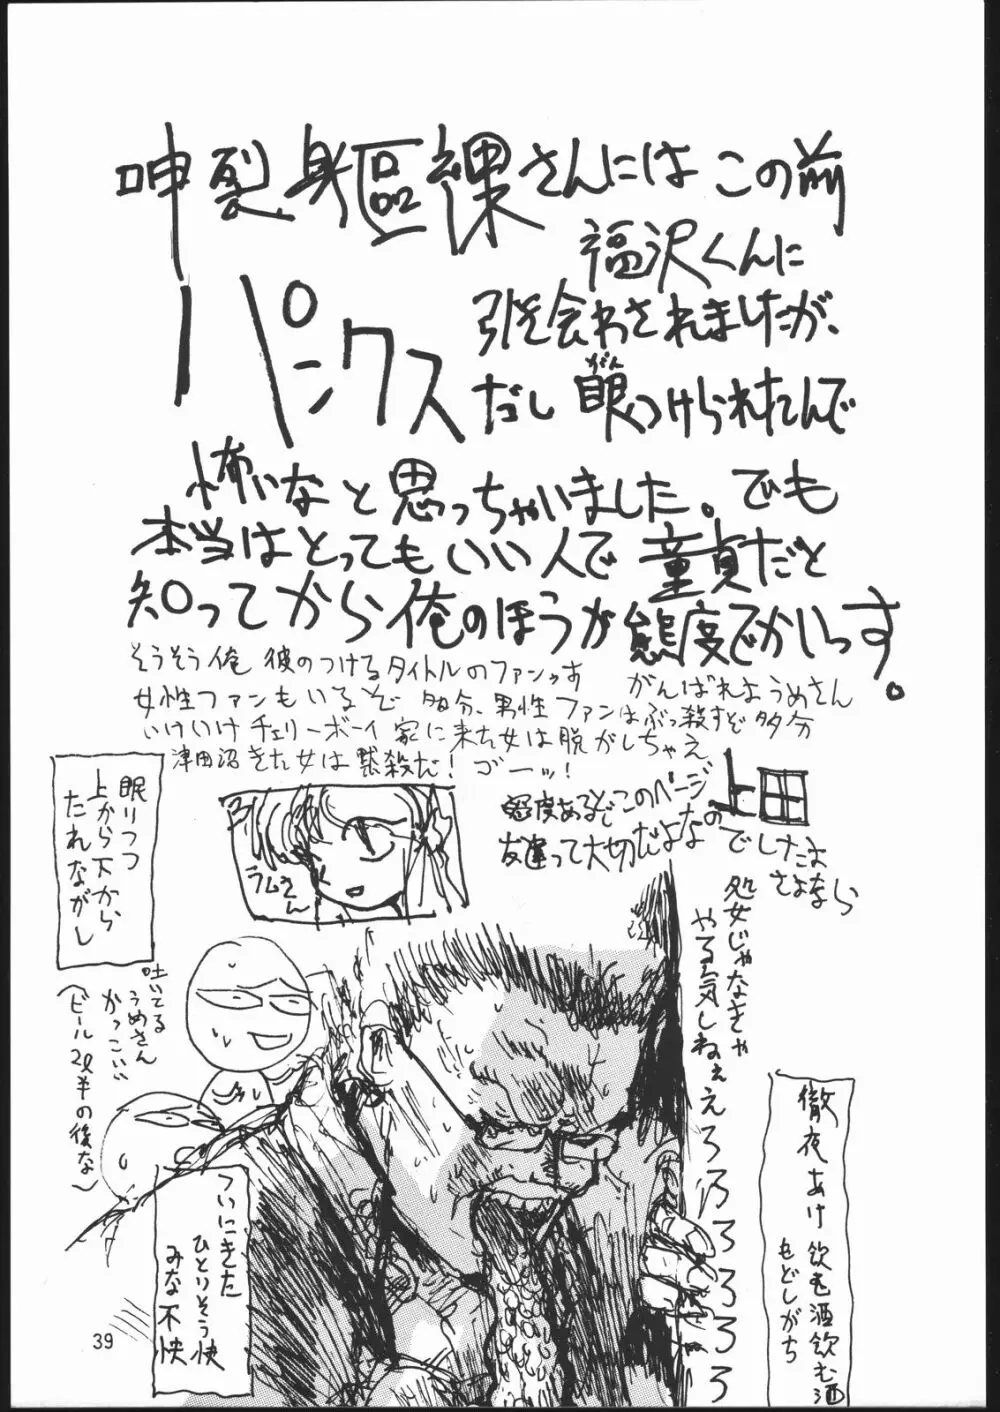 呻裂身區裸さんには この前
福沢くんに
引き会わされましたが、
パンクス
だし 眼つけられたんで
がん
怖いなと思っちゃいました。でも
本当はとってもいい人で 童貞だと
知ってから 俺のほうが 態度でかいっす。
そうそう 俺 彼のつけるタイトルのファンっす
がんばれようめさん
女性ファンもいるぞ 多分、男性ファンはぶっ殺すぞ多分
いけいけ チェリーボーイ 家に来た女は脱がしちゃえ
津田沼きた女は黙殺だ! ゴーッ!
上田
態度あるぞこのページ
友達って大切だよなの
でしたまま
さよなら
眠りつつ
上から下から
たれながし
ラムさん
吐いてる
うめさん
かっこいい
(ビール2ℓ半の後な)
処女じゃなきゃ
やる気しねぇえろろろろろろ
徹夜あけ 飲む酒飲む酒
もどしがち
ついにきた
ひとりそう快
みな不快
39